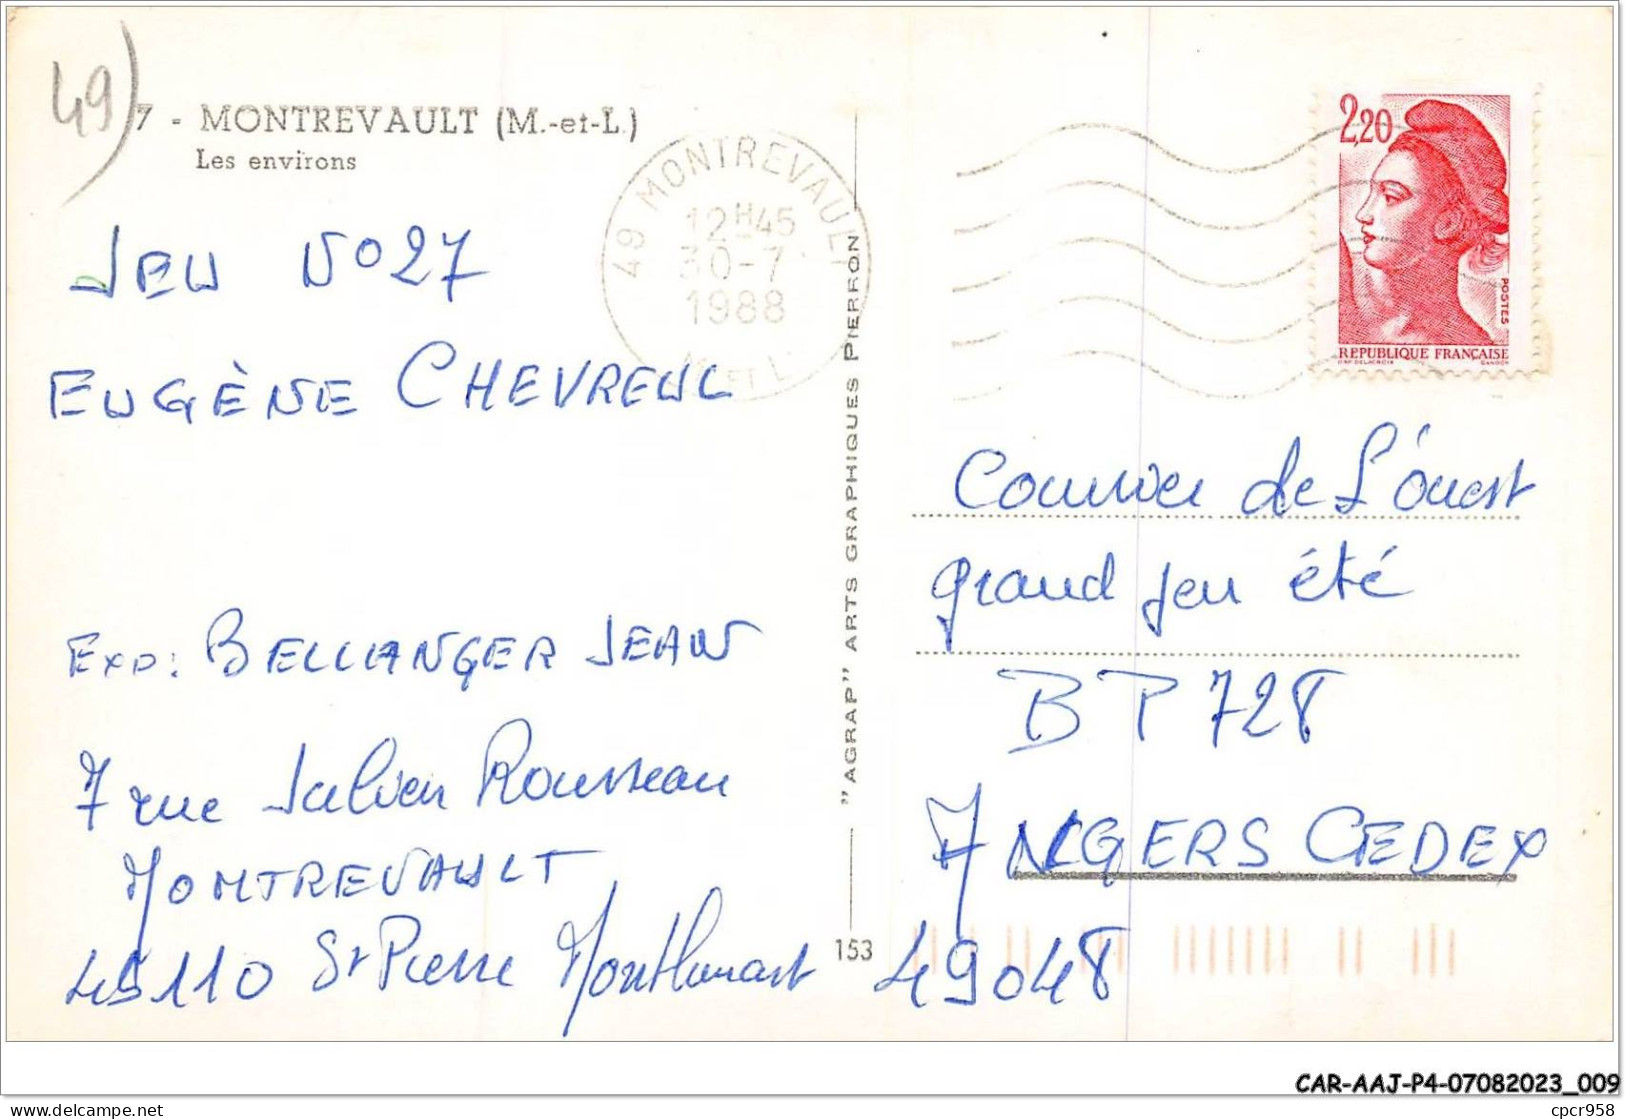 49)
7 - MONTREVAULT (M.-et-L.)
Les environs
49 MONTREVAULT
12H45
30-7
1988
M. ET L.
2,20
POSTES
RÉPUBLIQUE FRANÇAISE
D'AP. DELACROIX GANDON
JEU N° 27
EUGÈNE CHEVREUL
EXP: BELLANGER JEAN
7 rue Julien Rousseau
MONTREVAULT
49110 St Pierre Montlimart
"AGRAP" ARTS GRAPHIQUES PIERRON
153
Courrier de L'Ouest
grand jeu été
BP 728
ANGERS CEDEX
49048
CAR-AAJ-P4-07082023_009
delcampe.net
cpcr958